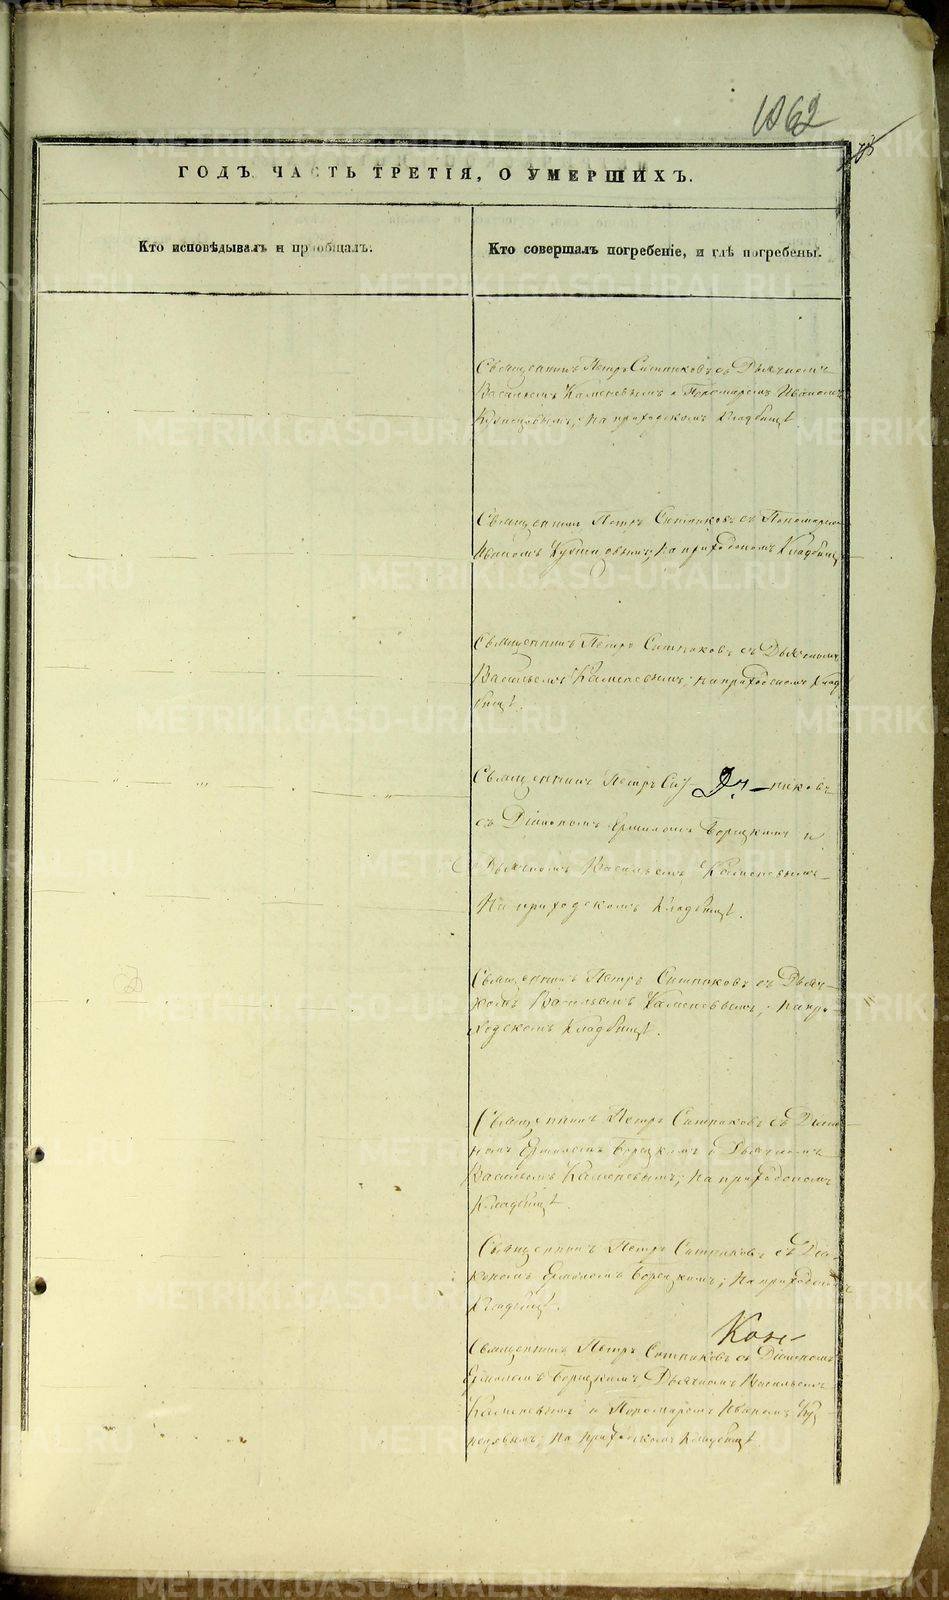 1862
ГОДЪ. ЧАСТЬ ТРЕТІЯ, О УМЕРШИХЪ.
Кто исповѣдывалъ и пріобщалъ.
Кто совершалъ погребеніе, и гдѣ погребены.
Священникъ Петръ Ситниковъ съ Дьячкомъ
Васильемъ Каменевымъ и Пономаремъ Иваномъ
Кузнецовымъ; на приходскомъ кладбищѣ.
Священникъ Петръ Ситниковъ съ Пономаремъ
Иваномъ Кузнецовымъ; на приходскомъ кладбищѣ
Священникъ Петръ Ситниковъ съ Дьячкомъ
Васильемъ Каменевымъ; на приходскомъ клад
бищѣ.
Священникъ Петръ Сит Дч. никовъ
съ Діакономъ Ермиломъ Борецкимъ и
Дьячкомъ Васильемъ Каменевымъ
На приходскомъ кладбищѣ.
Священникъ Петръ Ситниковъ съ Дьяч-
комъ Васильемъ Каменевымъ; на при-
ходскомъ кладбищѣ.
Священникъ Петръ Ситниковъ съ Діако-
номъ Ермиломъ Борецкимъ и Дьячкомъ
Васильемъ Каменевымъ; на приходскомъ
кладбищѣ.
Священникъ Петръ Ситниковъ съ Діа-
кономъ Ермиломъ Борецкимъ; на приходскомъ
кладбищѣ.
Священникъ Петръ Ситниковъ съ Діакономъ
Ермиломъ Борецкимъ Дьячкомъ Васильемъ
Каменевымъ и Пономаремъ Иваномъ Куз
нецовымъ; на приходскомъ кладбищѣ.
METRIKI.GASO-URAL.RU